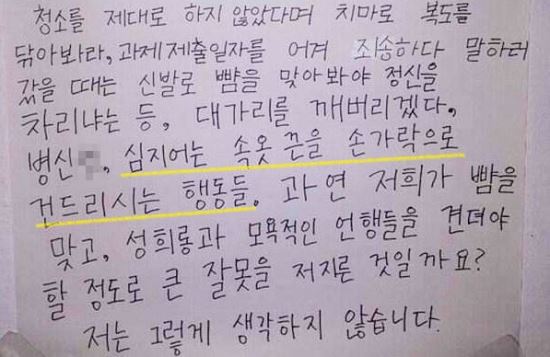 청소를 제대로 하지 않았다며 치마로 복도를
닦아봐라, 과제 제출일자를 어겨 죄송하다 말하러
갔을 때는 신발로 뺨을 맞아봐야 정신을
차리냐는 등, 대가리를 깨버리겠다,
병신 , 심지어는 속옷 끈을 손가락으로
건드리시는 행동들. 과연 저희가 뺨을
맞고, 성희롱과 모욕적인 언행들을 견뎌야
할 정도로 큰 잘못을 저지른 것일까요?
저는 그렇게 생각하지 않습니다.